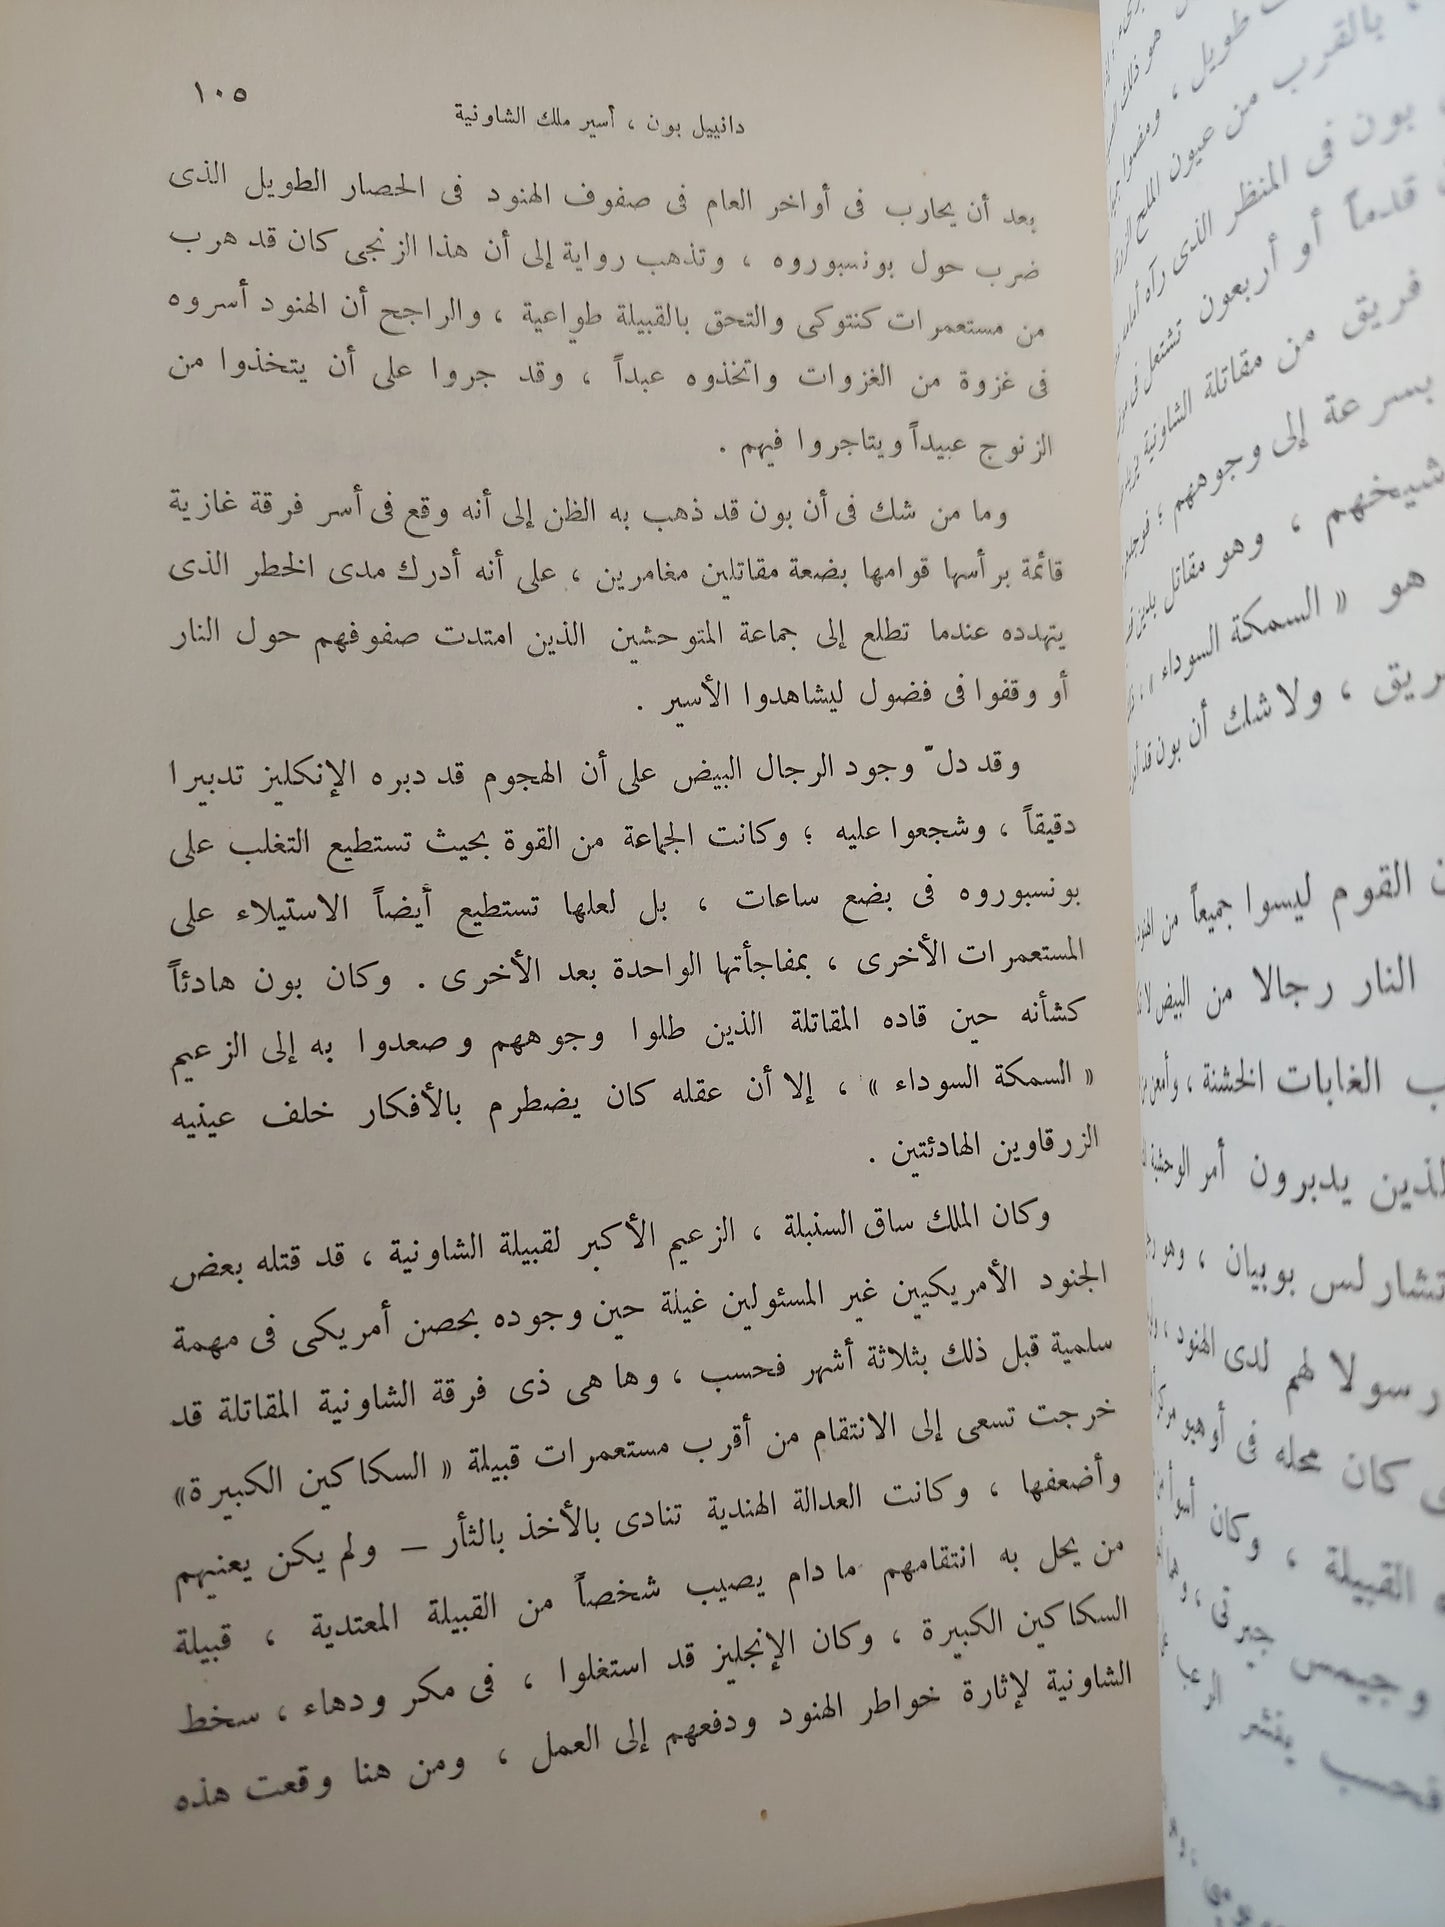 ١٠٥
دانييل بون ، أسير ملك الشاونية
بعد أن يحارب فى أواخر العام فى صفوف الهنود فى الحصار الطويل الذى
ضرب حول بونسبوروه ، وتذهب رواية إلى أن هذا الزنجى كان قد هرب
من مستعمرات كنتوكى والتحق بالقبيلة طواعية ، والراجح أن الهنود أسروه
فى غزوة من الغزوات واتخذوه عبداً ، وقد جروا على أن يتخذوا من
الزنوج عبيداً ويتاجروا فيهم .
وما من شك فى أن بون قد ذهب به الظن إلى أنه وقع فى أسر فرقة غازية
قائمة برأسها قوامها بضعة مقاتلين مغامرين ، على أنه أدرك مدى الخطر الذى
يتهدده عندما تطلع إلى جماعة المتوحشين الذين امتدت صفوفهم حول النار
أو وقفوا فى فضول ليشاهدوا الأسير .
وقد دلّ وجود الرجال البيض على أن الهجوم قد دبره الإنكليز تدبيرا
دقيقاً ، وشجعوا عليه ؛ وكانت الجماعة من القوة بحيث تستطيع التغلب على
بونسبوروه فى بضع ساعات ، بل لعلها تستطيع أيضاً الاستيلاء على
المستعمرات الأخرى ، بمفاجأتها الواحدة بعد الأخرى . وكان بون هادئاً
كشأنه حين قاده المقاتلة الذين طلوا وجوههم وصعدوا به إلى الزعيم
« السمكة السوداء » ، إلا أن عقله كان يضطرم بالأفكار خلف عينيه
الزرقاوين الهادئتين .
وكان الملك ساق السنبلة ، الزعيم الأكبر لقبيلة الشاونية ، قد قتله بعض
الجنود الأمريكيين غير المسئولين غيلة حين وجوده بحصن أمريكى فى مهمة
سلمية قبل ذلك بثلاثة أشهر فحسب ، وها هى ذى فرقة الشاونية المقاتلة قد
خرجت تسعى إلى الانتقام من أقرب مستعمرات قبيلة « السكاكين الكبيرة»
وأضعفها ، وكانت العدالة الهندية تنادى بالأخذ بالثأر — ولم يكن يعنيهم
من يحل به انتقامهم ما دام يصيب شخصاً من القبيلة المعتدية ، قبيلة
السكاكين الكبيرة ، وكان الإنجليز قد استغلوا ، فى مكر ودهاء ، سخط
الشاونية لإثارة خواطر الهنود ودفعهم إلى العمل ، ومن هنا وقعت هذه
طويل ،
بالقرب من عيون الملح
بون فى المنظر الذى رآه
قدماً أو أربعون تشتعل
فريق من مقاتلة الشاونية
بسرعة إلى وجوههم ؛
شيخهم ، وهو مقاتل
هو « السمكة السوداء »
، ولا شك أن بون قد
القوم ليسوا جميعاً من
النار رجالا من البيض
الغابات الخشنة ، وأمعن
يدبرون أمر الوحشية
بوبيان ، وهو
رسولا لهم لدى الهنود ،
كان محله فى أوهيو
القبيلة ، وكان أسوأ
وجيمس جيرتى ،
فحسب ينشر الرعب